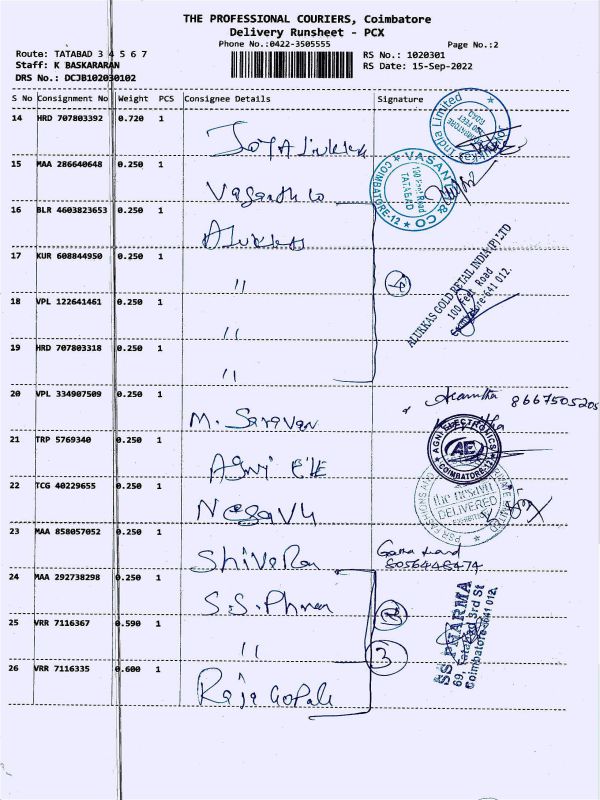 THE PROFESSIONAL COURIERS, Coimbatore
Delivery Runsheet - PCX
Phone No.:0422-3505555 Page No.:2
Route: TATABAD 3 4 5 6 7 RS No.: 1020301
Staff: K BASKARARAN RS Date: 15-Sep-2022
DRS No.: DCJB102030102
S No Consignment No Weight PCS Consignee Details Signature
14 HRD 707803392 0.720 1
15 MAA 286640648 0.250 1
Vasanth & Co
VASANTH & CO
100 Feet Road
TATABAD
COIMBATORE-12
16 BLR 4603823653 0.250 1
Alukkas
17 KUR 608844950 0.250 1
"
4
ALUKKAS GOLD RETAIL INDIA (P) LTD
100 Feet Road
Coimbatore-641 012.
18 VPL 122641461 0.250 1
"
19 HRD 707803318 0.250 1
"
20 VPL 334907509 0.250 1
M. Saravan
8667505205
21 TRP 5769340 0.250 1
Agni Ele
AGNI ELECTRONICS
AE
COIMBATORE-12
22 TCG 40229655 0.250 1
DELIVERED
23 MAA 858057052 0.250 1
24 MAA 292738298 0.250 1
S.S. Pharma
2
SS PHARMA
69, Tatabad 3rd St
Coimbatore-641 012.
25 VRR 7116367 0.590 1
"
3
26 VRR 7116335 0.600 1
Raja Gopal